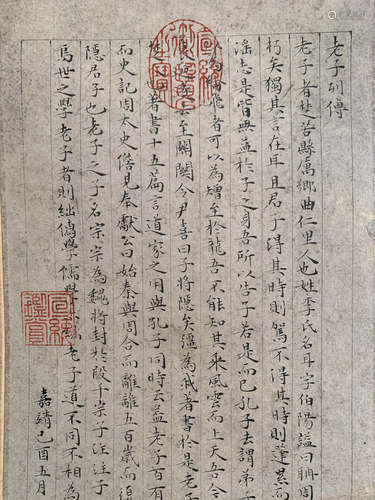 老子列傳
老子者楚苦縣厲鄉曲仁里人也姓李氏名耳字伯陽謚曰聃周
朽矣獨其言在耳且君子得其時則駕不得其時則蓬累而
淫志是皆無益於子之身吾所以告子若是而已孔子去謂弟子
以為綸飛者可以為矰至於龍吾不能知其乘風雲而上天吾今
去至關關令尹喜曰子將隱矣彊為我著書於是老子
著書十五篇言道家之用與孔子同時云蓋老子百有
而史記周太史儋見秦獻公曰始秦與周合而離離五百歲而復
隱君子也老子之子名宗宗為魏將封於段干宗子注注子
焉世之學老子者則絀儒學儒學老子道不同不相為
嘉靖己酉五月
宣統御覽之寶
宣統鑑賞